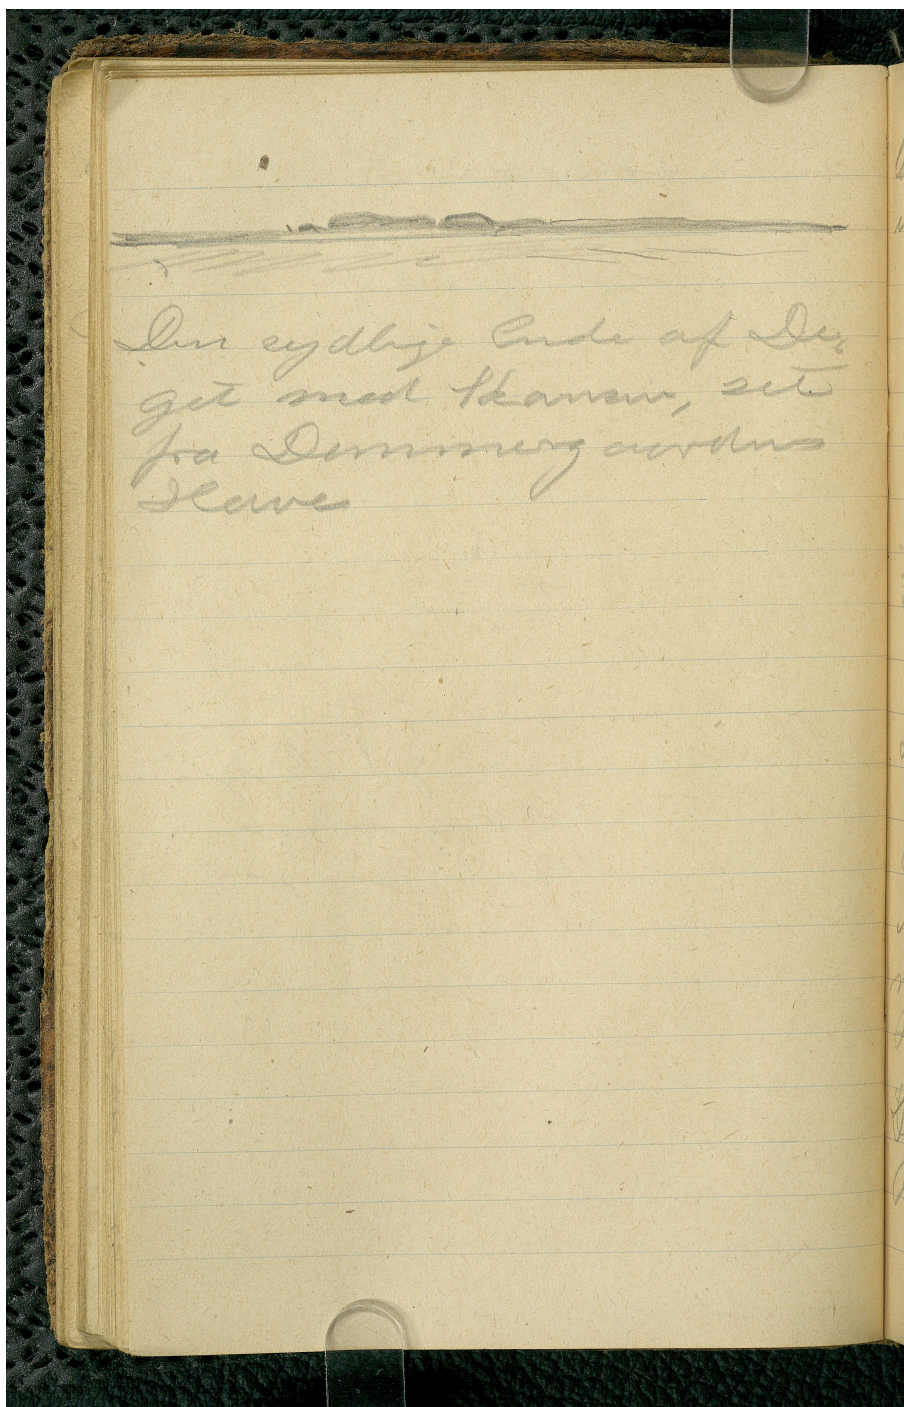 Den sydlige Ende af Di-
get med Skansen, set
fra Demmergaardens
Have